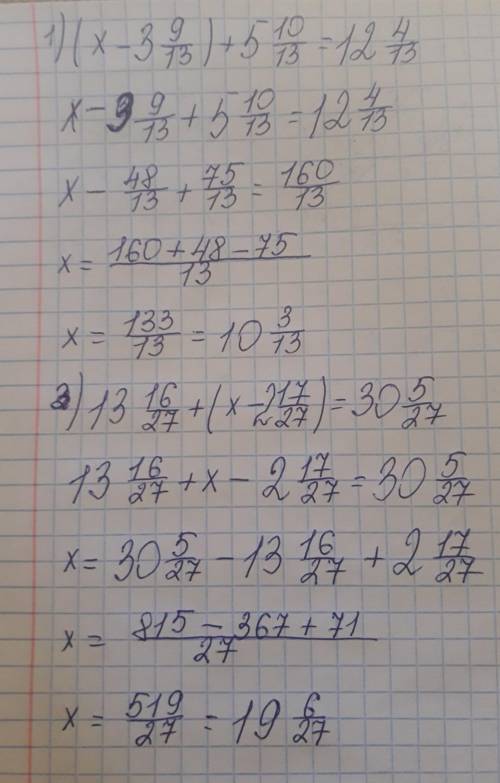 1) (x - 3 9/13) + 5 10/13 = 12 4/13
x - 3 9/13 + 5 10/13 = 12 4/13
x - 48/13 + 75/13 = 160/13
x = (160 + 48 - 75)/13
x = 133/13 = 10 3/13
2) 13 16/27 + (x - 2 17/27) = 30 5/27
13 16/27 + x - 2 17/27 = 30 5/27
x = 30 5/27 - 13 16/27 + 2 17/27
x = (815 - 367 + 71)/27
x = 519/27 = 19 6/27